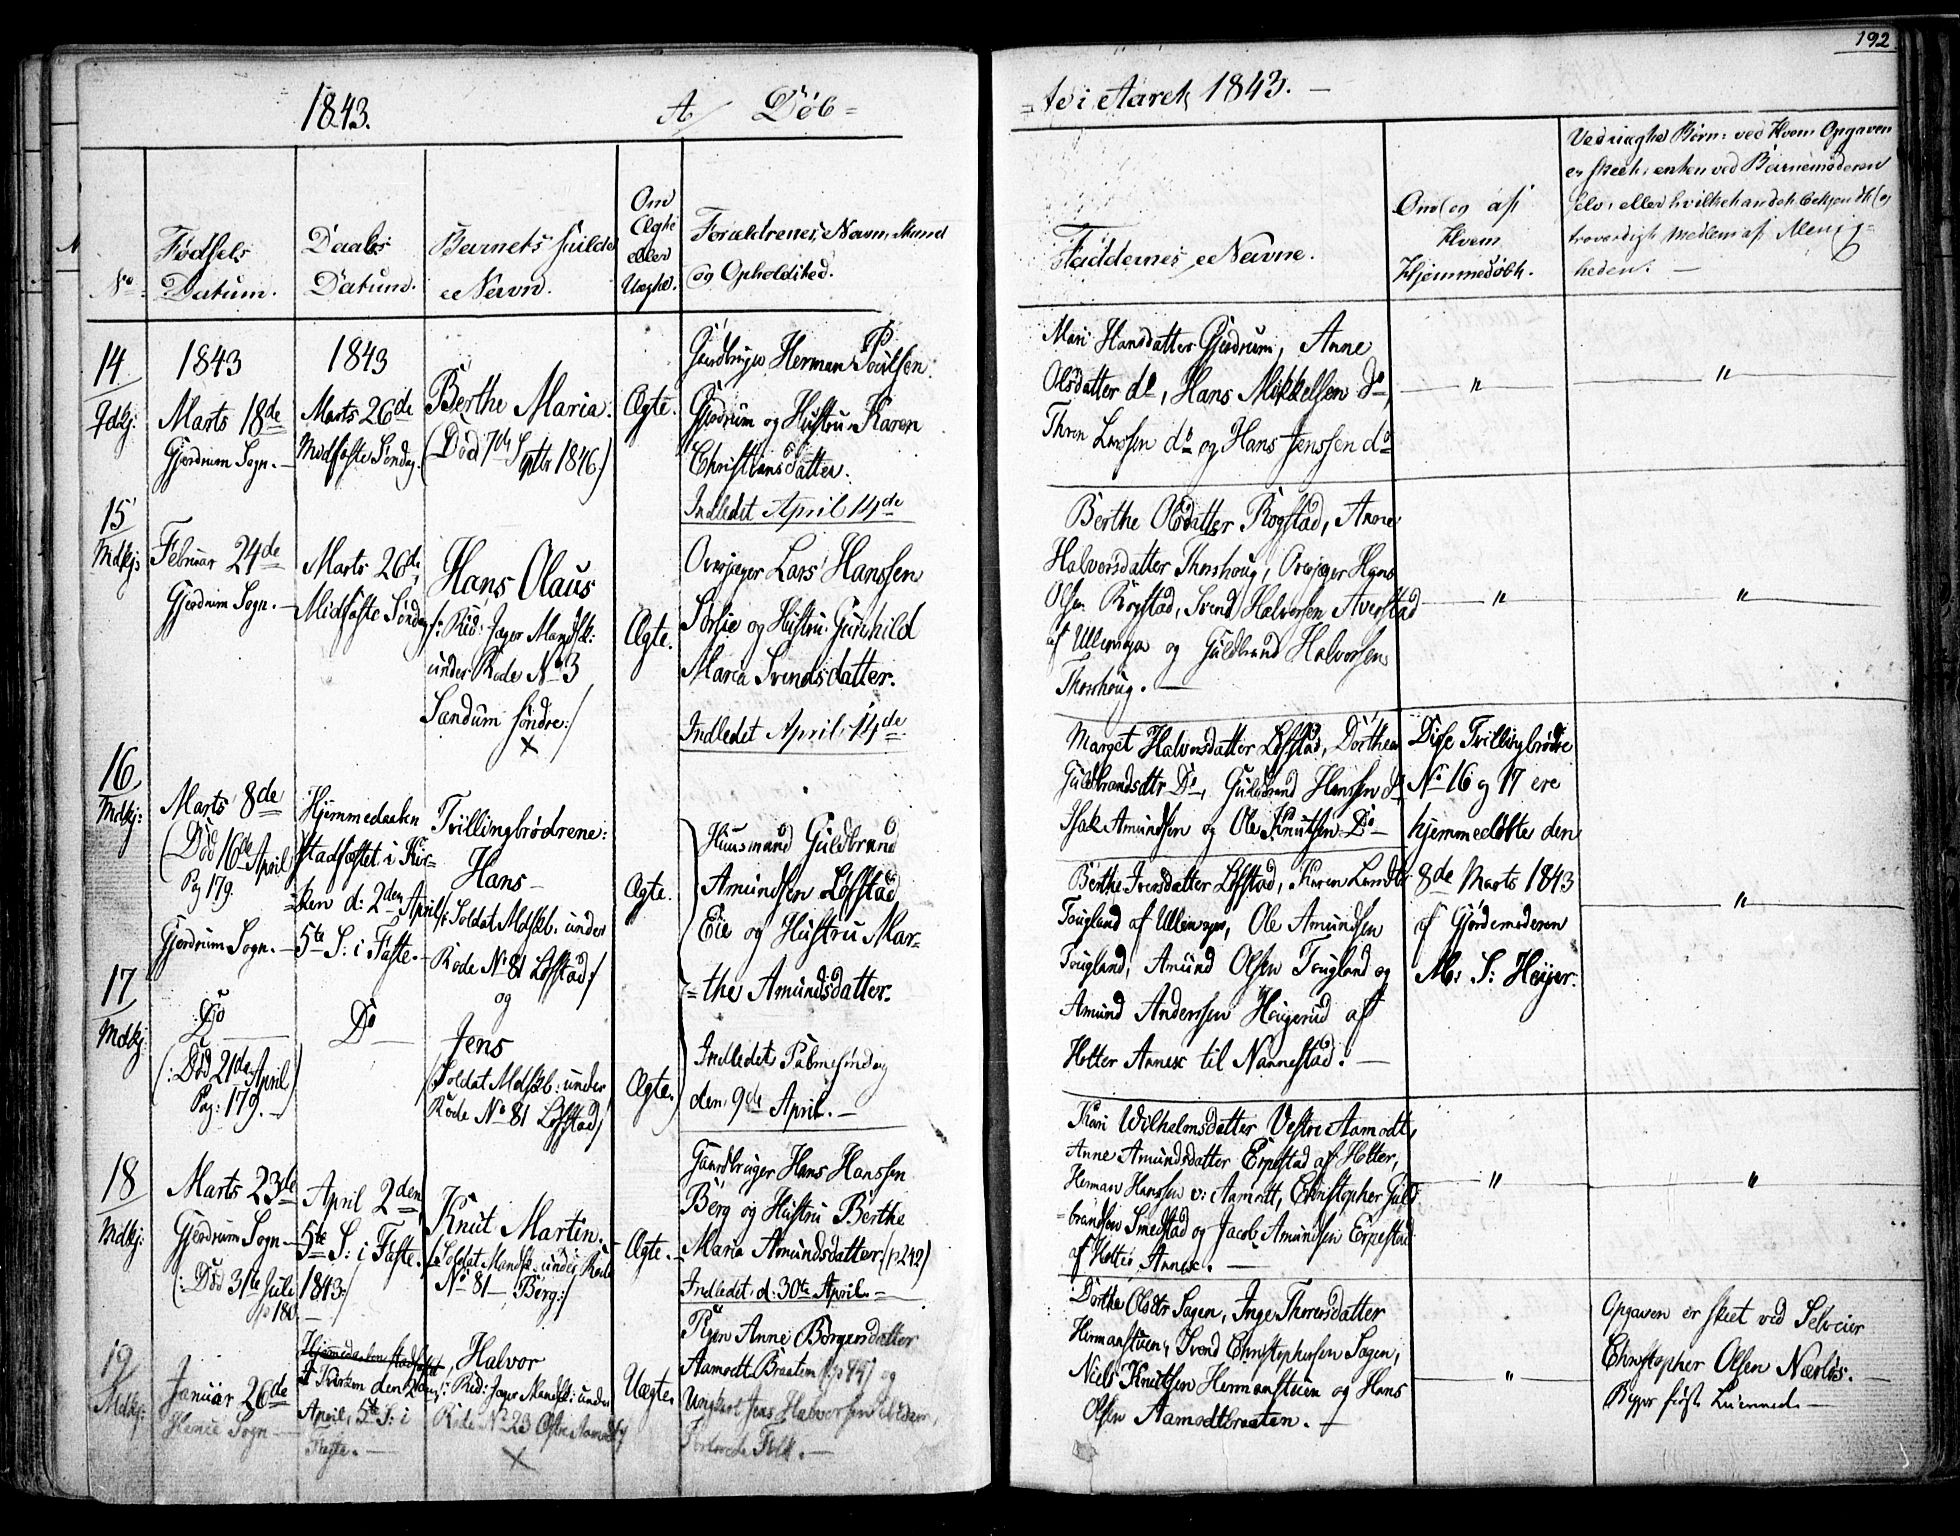 192
1843. A/ Døb=
=te i Aaret 1843. —
No
Fødsels
Datum.
Daabs
Datum.
Barnets fulde
Navn.
Om
Ægte
eller
Uægte.
Forældrenes Navn, Stand
og Opholdsted.
Faddernes Navne.
Om og af
Hvem
Hjemmedøbt.
Ved uægte Børn: ved Hvem Opgaven
er skeet, enten ved Barnemoderen
selv, eller hvilket andet bekjendt og
troværdigt Medlem af Menig=
heden. —
14
1843
Marts 18de
Gjerdrum Sogn. —
1843
Marts 26de
Midfaste Søndag.
Berthe Maria.
(Død 7de Septbr 1846.)
Ægte.
Gaardbruger Herman Poulsen
Gjerdrum og Hustru Karen
Christiansdatter.
Indledet April 14de
Mari Hansdatter Gjerdrum, Anne
Olsdatter do, Hans Mikkelsen Do,
Thron Larsen do og Hans Jenssen do
— " —
— " —
15
Mdkj:
Februar 24de
Gjerdrum Sogn. —
Marts 26de,
Midfaste Søndag
Hans Olaus
/: Rid: Jæger Mandsk:
under Rode No 3
Sandum søndre:/
×
Ægte.
Overjæger Lars Hanssen
og Hustru Gunhild
Maria Svendsdatter.
Indledet April 14de
Berthe Olsdatter Rogstad, Anne
Halvorsdatter Thoshoug, Overjæger Hans
Olsen Rogstad, Svend Halvorsen Averstad
af Ullensager og Guldbrand Halvorsen
Thoshoug. —
— " —
— " —
16
Mdkj:
Marts 8de
(Død 16de April
Pag 179.
Gjerdrum Sogn. —
Hjemmedaaben
stadfæstet i Kir=
=ken d: 2den April
5te S: i Faste. —
Tvillingbrødrene:
Hans —
/: Soldat Mdskb. under
Rode No 81 Løfstad:/
og
Ægte.
Huusmand Guldbrand
Amundsen Løfstad
Eie og Hustru Mar=
=the Amundsdatter.
Indledet Palmesøndag
den 9de April. —
Marget Halvorsdatter Løfstad, Dorthea
Guldbrandsdtr Do, Guldbrand Hansen do,
Isak Amundsen og Ole Knutsen Do —
Disse Tvillingbrødre
No 16 og 17 ere
hjemmedøbte den
8de Marts 1843
af Gjordemoderen
M: S: Heyer.
— " —
17
Mdkj:
Do
(: Død 21de April)
Pag: 179. —
Do —
Jens
(Soldat Mdskb: under
Rode No 81 Løfstad)
Ægte.
Berthe Iversdatter Løfstad, Karen
Tougland af Ullensager, Ole Amundsen
Tougland, Amund Olsen Tougland og
Amund Anderssen Haugerud af
Holter Annex til Nannestad. —
18
Mdkj:
Marts 23de
Gjerdrum Sogn —
(: Død 31te Juli
p 180.
April 2den,
5te S: i Faste.
1843:/
Knut Martin.
/: Soldat Mandsk: under Rode
No 81 — Berg:/
Ægte.
Gaardbruger Hans Hanssen
Berg og Hustru Berthe
Maria Amundsdatter. (p 242)
Indledet d: 30te April. —
Kari Wilhelmsdatter Vestre Aamodt,
Anne Amundsdatter Erpestad af Holter,
Herman Hanssen v: Aamodt, Christopher Guld=
=brandsen Smedstad og Jacob Amundsen Erpestad
af Holter Annex. —
— " —
— " —
19
Mdkj:
Januar 26de
Sogn —
Hjemmedaaben stadfæstet
i Kirken den 2den
April, 5te S: i
Faste. —
Halvor
/: Rid: Jæger Mandsk: under
Rode No 23 Østre Aamodt:/
×
Uægte.
Pigen Anne Borgersdatter
Aamodt Braaten og
Ungkarl Jens Halvorsen
Folk. —
Dorthe Olsdtr Sagen, Inge Thoresdatter
Hermanstuen, Svend Christophersen Sagen,
Niels Knutsen Hermanstuen og Hans
Olsen Aamodtbraaten. —
— " —
Opgaven er skeet ved Selveier
Christopher Olsen Nærløs. —